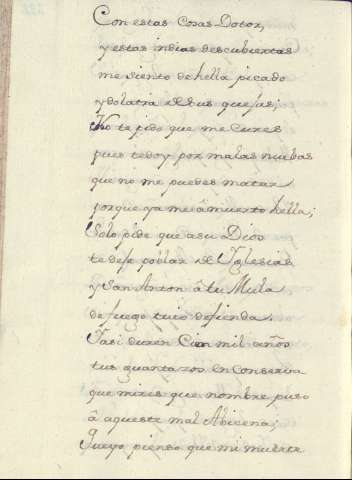 Con estas Cosas Dotor,
y estas indias descubiertas
me siento de hella picado
ydolatra de sus quejas;
No te pido que me Cures
pues te doy por malas nuebas
que no me puedes matar
porque ya me â muerto hella;
Solo pide que a su Dios
te deje poblar de Yglesias
y San Anton â tu Mula
de fuego tuio defienda.
Y asi duren Cien mil años
tus guantazos en Conserva
que mires que nombre puso
â aqueste mal Abicena;
Que yo pienso que mi muerte